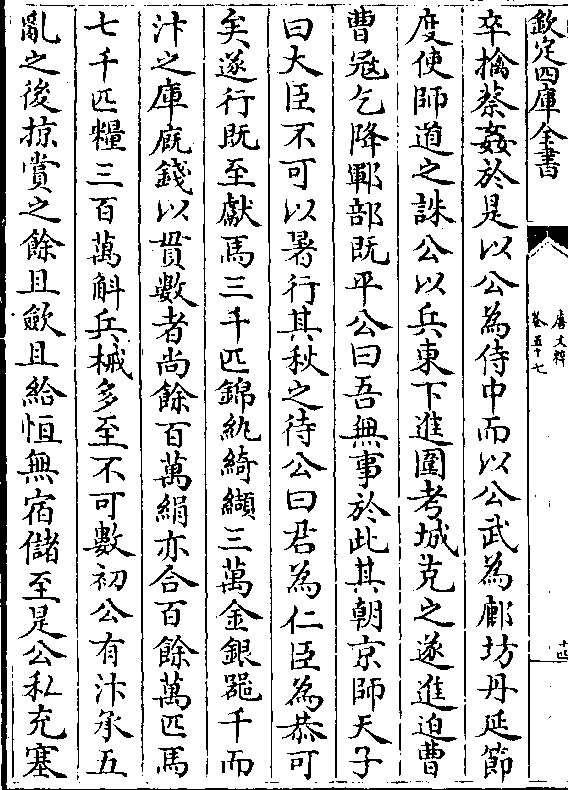 欽定四庫全書
唐文粹
卷五十七
十四
卒擒蔡姦於是以公為侍中而以公武為鄜坊丹延節
度使師道之誅公以兵東下進圍考城克之遂進迫曹
曹冦乞降鄆部既平公曰吾無事於此其朝京師天子
曰大臣不可以暑行其秋之待公曰君為仁臣為恭可
矣遂行既至獻馬三千匹錦紈綺纈三萬金銀噐千而
汴之庫廐錢以貫數者尚餘百萬絹亦合百餘萬匹馬
七千匹糧三百萬斛兵械多至不可數初公有汴承五
亂之後掠賞之餘且歛且給恒無宿儲至是公私充塞